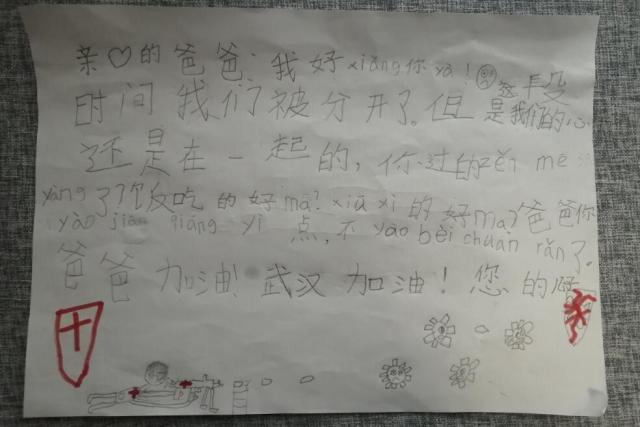 亲♡的爸爸：我好xiǎng你ya！这段
时间我们被分开了。但是我们的心
还是在一起的，你过的zěn me
yàng了？饭吃的好ma？xiū xi的好ma？爸爸你
yào jiān qiáng yì点，不yào bèi chuán rǎn了。
爸爸加油！武汉加油！您的